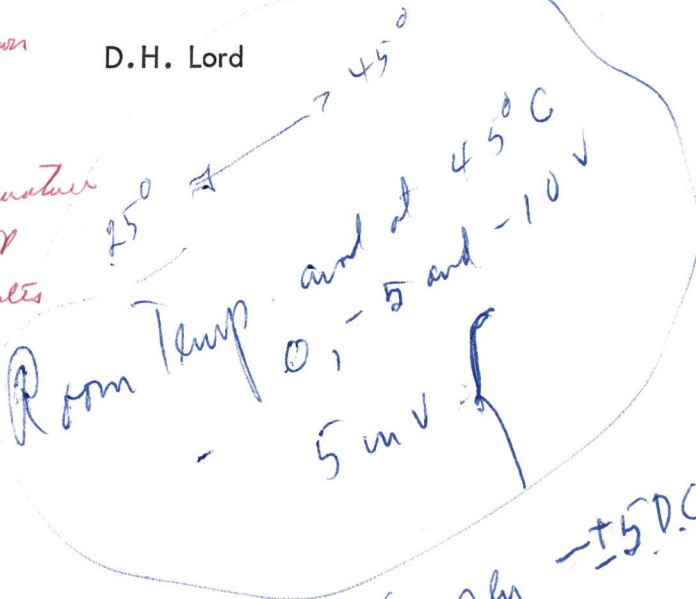 D.H. Lord
25° ↔ 45°
Room Temp. and at 45°C
0, -5 and -10 V
- 5 mV {
±5 D.C